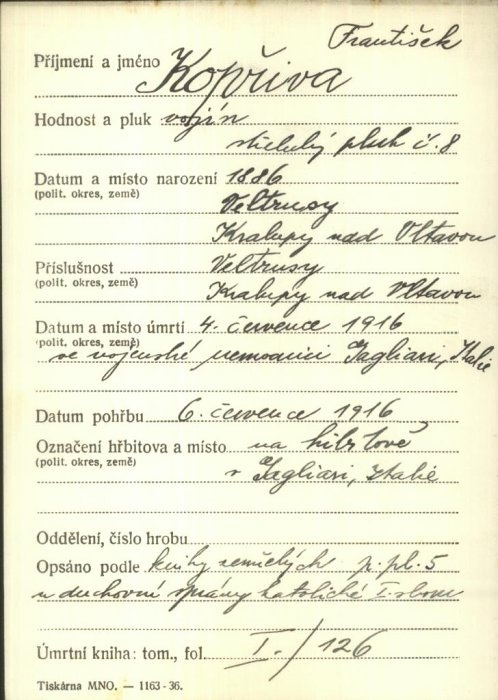 František
Příjmení a jméno Kopřiva
Hodnost a pluk vojín
střelecký pluk č. 8
Datum a místo narození 1886
(polit. okres, země) Veltrusy
Kralupy nad Vltavou
Příslušnost Veltrusy
(polit. okres, země) Kralupy nad Vltavou
Datum a místo úmrtí 4. července 1916
(polit. okres, země)
ve vojenské nemocnici Gagliari, Italie
Datum pohřbu 6. července 1916
Označení hřbitova a místo na hřbitově
(polit. okres, země) v Gagliari, Italie
Oddělení, číslo hrobu
Opsáno podle knihy zemřelých p. pl. 5
u duchovní správy katolické I. sboru
Úmrtní kniha: tom., fol. I./126
Tiskárna MNO. — 1163-36.